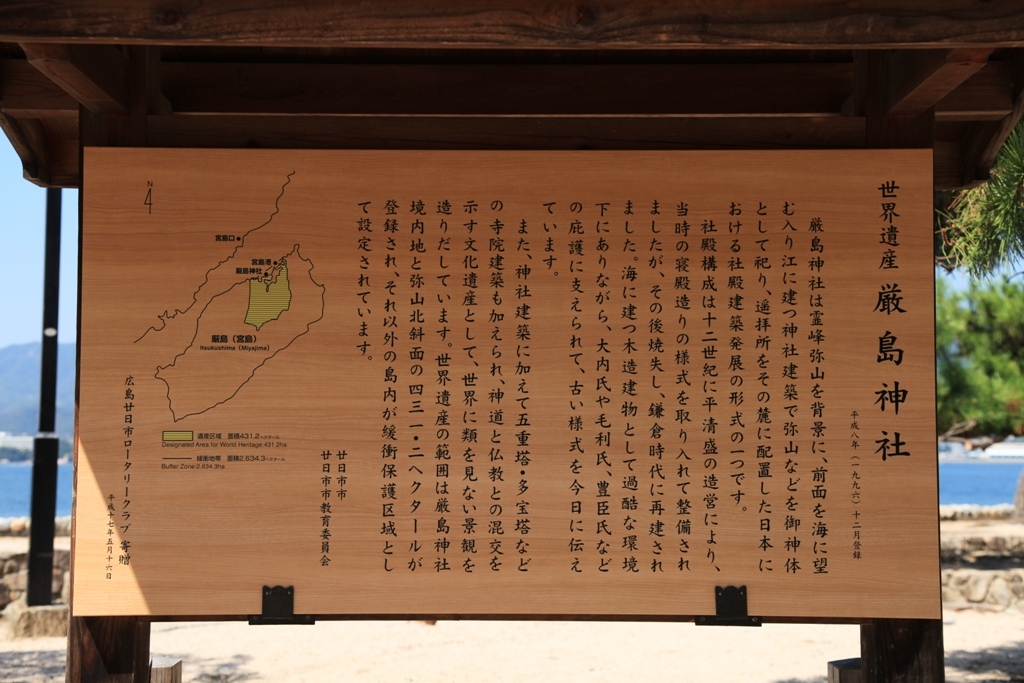 世界遺産 厳島神社
平成八年(一九九六)十二月登録
厳島神社は霊峰弥山を背景に、前面を海に望
む入り江に建つ神社建築で弥山などを御神体
として祀り、遥拝所をその麓に配置した日本に
おける社殿建築発展の形式の一つです。
社殿構成は十二世紀に平清盛の造営により、
当時の寝殿造りの様式を取り入れて整備され
ましたが、その後焼失し、鎌倉時代に再建され
ました。海に建つ木造建物として過酷な環境
下にありながら、大内氏や毛利氏、豊臣氏など
の庇護に支えられて、古い様式を今日に伝え
ています。
また、神社建築に加えて五重塔・多宝塔など
の寺院建築も加えられ、神道と仏教との混交を
示す文化遺産として、世界に類を見ない景観を
造りだしています。世界遺産の範囲は厳島神社
境内地と弥山北斜面の四三一・二ヘクタールが
登録され、それ以外の島内が緩衝保護区域とし
て設定されています。
廿日市市
廿日市市教育委員会
N
宮島口
宮島港
厳島神社
厳島(宮島)
Itsukushima (Miyajima)
遺産区域 面積431.2ヘクタール
Designated Area for World Heritage 431.2ha
緩衝地帯 面積2,634.3ヘクタール
Buffer Zone:2,634.3ha
広島廿日市ロータリークラブ 寄贈
平成十七年五月十六日